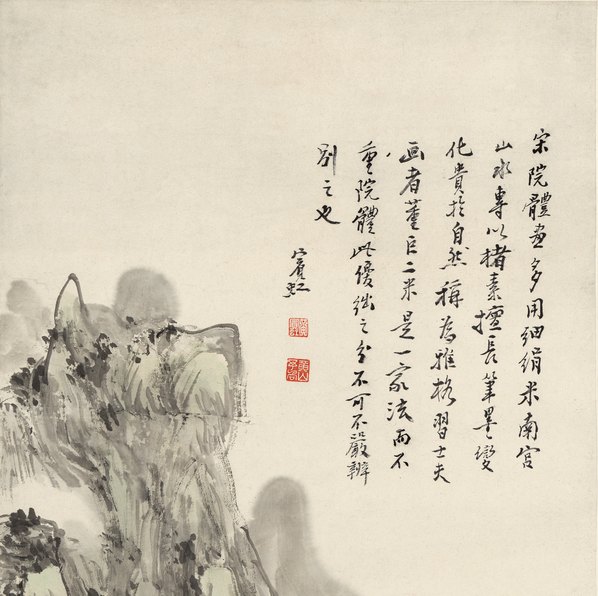 宋院體畫多用細絹米南宮
山水專以楮素擅長筆墨變
化貴於自然稱為雅格習士夫
画者董巨二米是一家法而不
重院體此優絀之分不可不嚴辨
別之也
賓虹